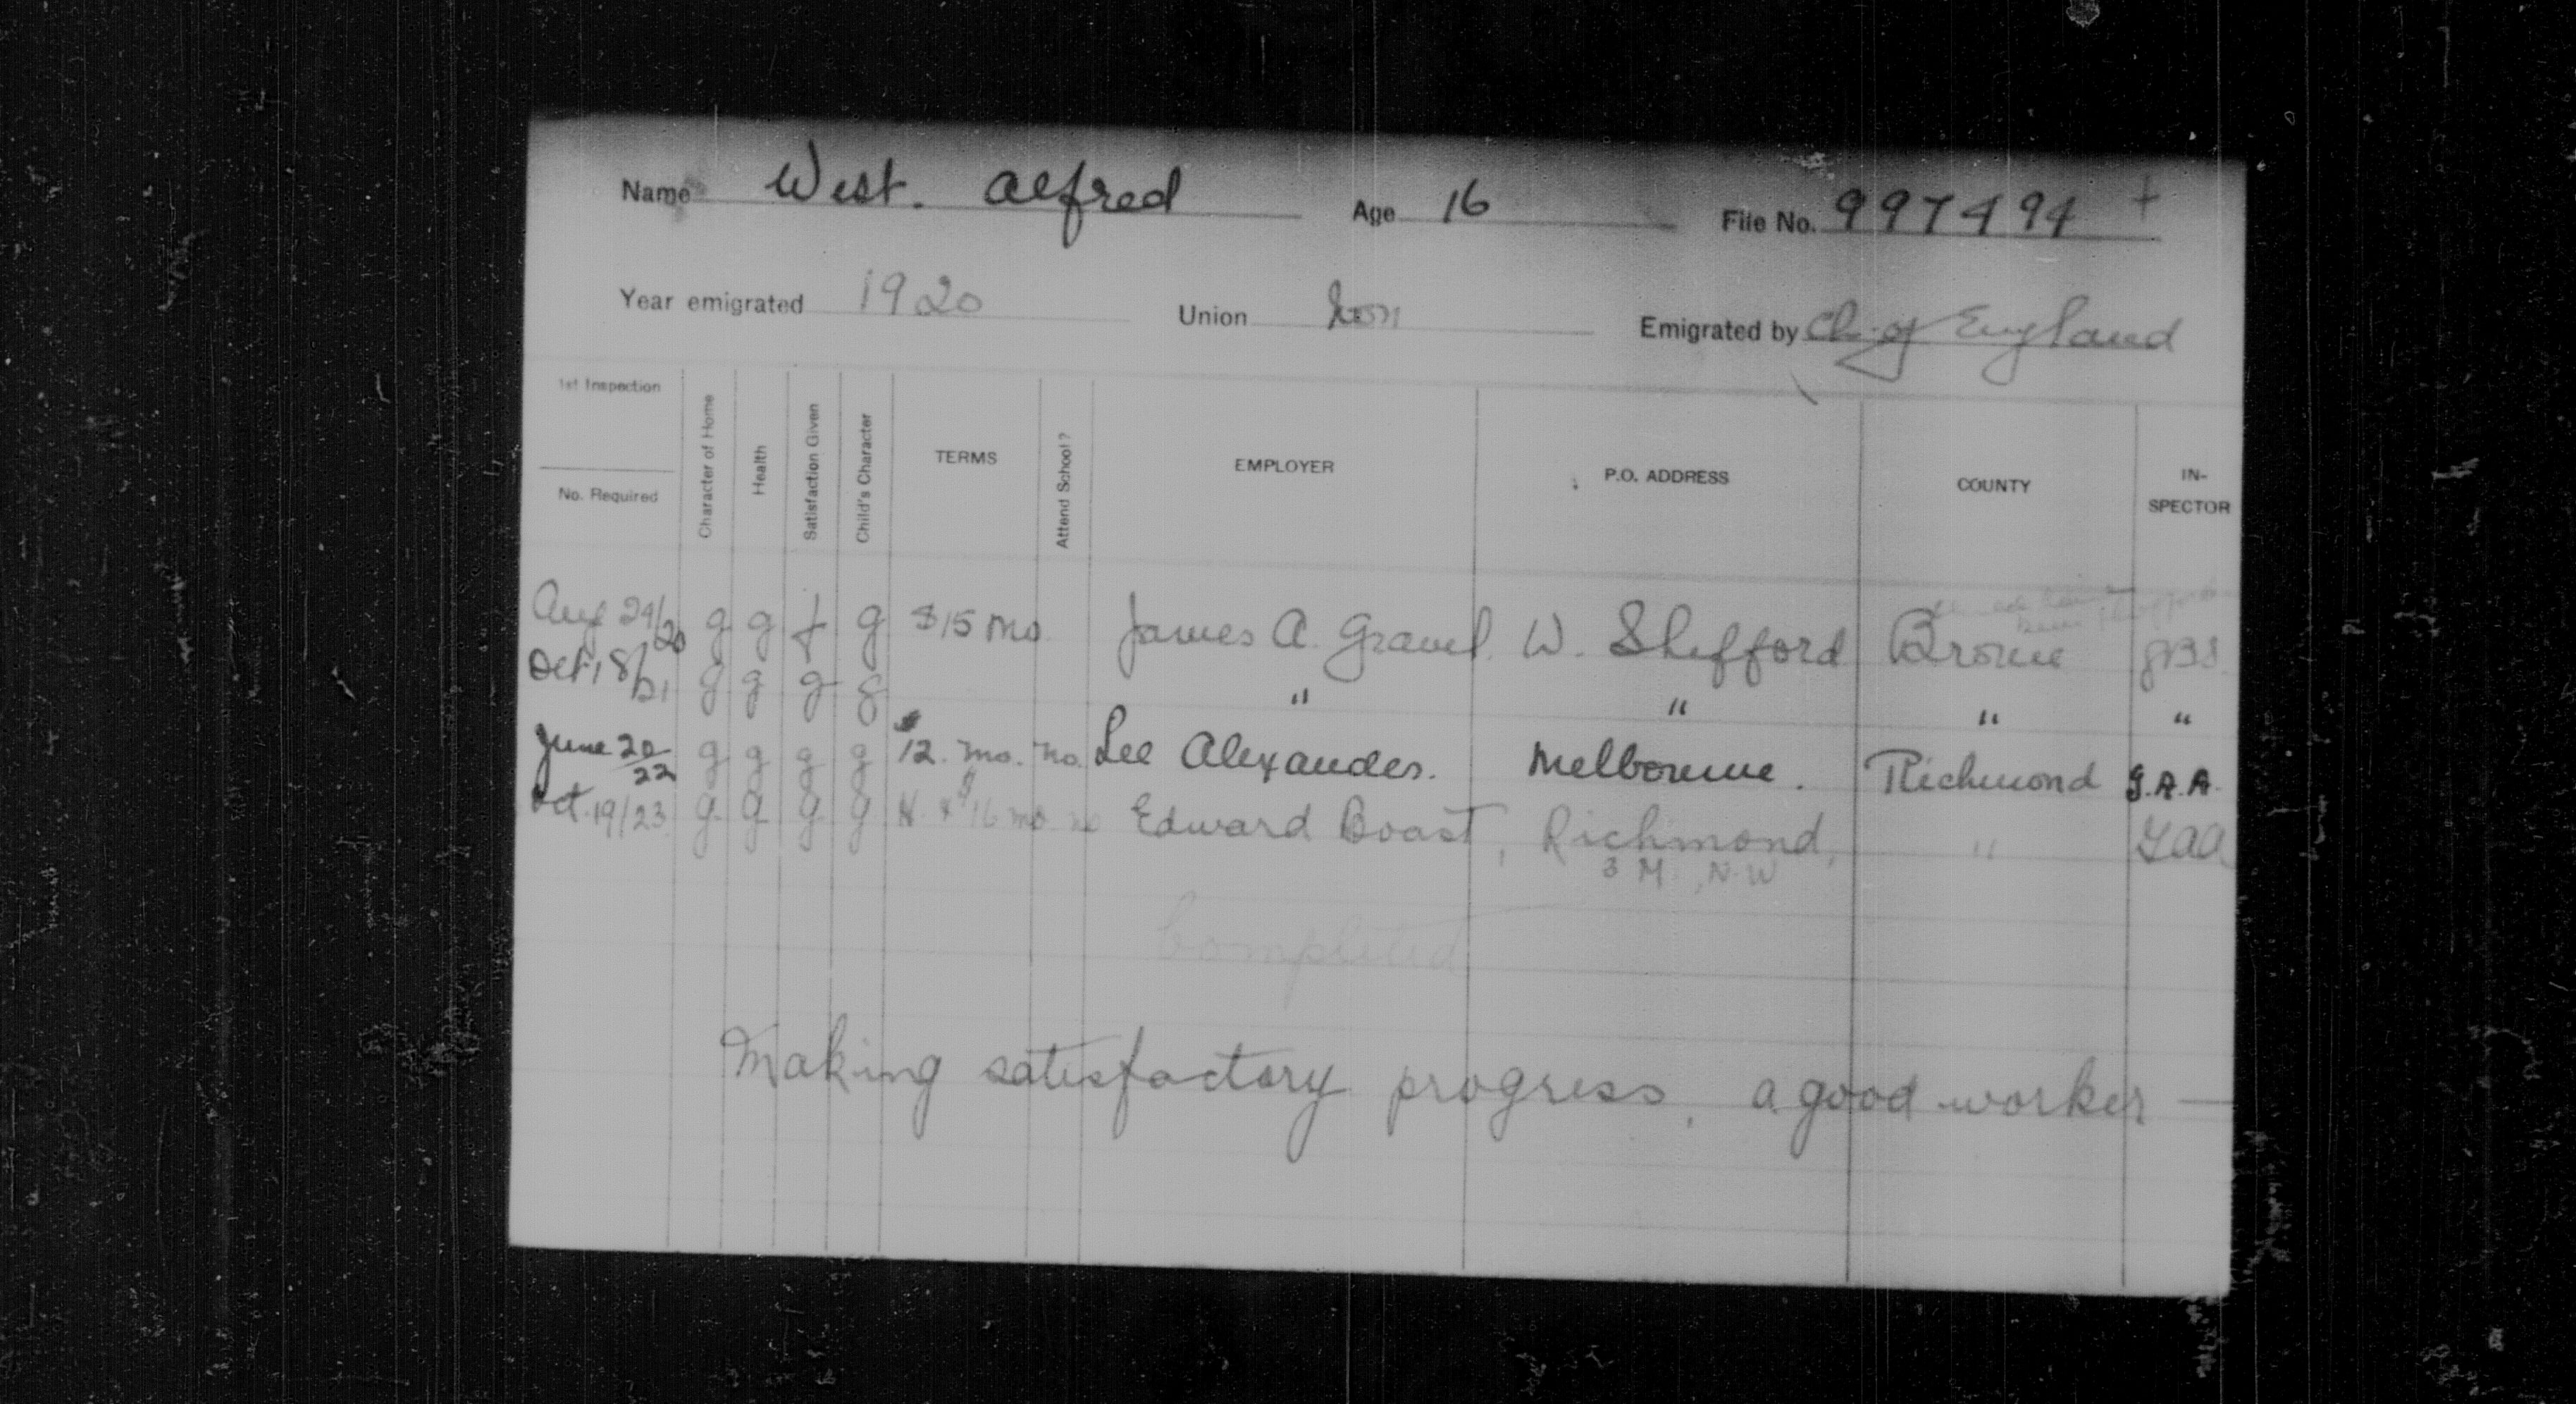 Name West. Alfred Age 16 File No. 997494 +
Year emigrated 1920 Union Emigrated by Ch. of England
1st Inspection
No. Required
Character of Home
Health
Satisfaction Given
Child's Character
TERMS
Attend School?
EMPLOYER
P.O. ADDRESS
COUNTY
IN-
SPECTOR
Aug 24/20 g g f g $15 mo James A. Gravel. W. Shefford Brome
Oct 18/21 g g g g " " " "
June 20/22 g g g g $12. mo. no. Lee Alexander. Melbourne. Richmond G.A.A.
Oct. 19/23 g g g g $16 mo no Edward Boast, Richmond, " GAA
3 M., N.W
Completed
Making satisfactory progress, a good worker —